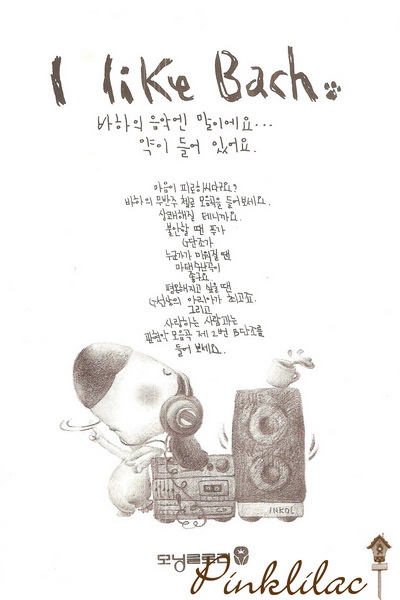 I like Bach
바하의 음악엔 말이에요...
약이 들어 있어요.
마음이 피로하시다구요?
바하의 무반주 첼로 모음곡을 들어보세요.
상쾌해질 테니까요.
불안할 땐 푸가
G단조가
누군가가 미워질 땐
마태수난곡이
좋구요
평온해지고 싶을 땐
G선상의 아리아가 최고죠.
그리고
사랑하는 사람과는
관현악 모음곡 제 2번 B단조를
들어 보세요.
INKEL
모닝글로리
Pinklilac